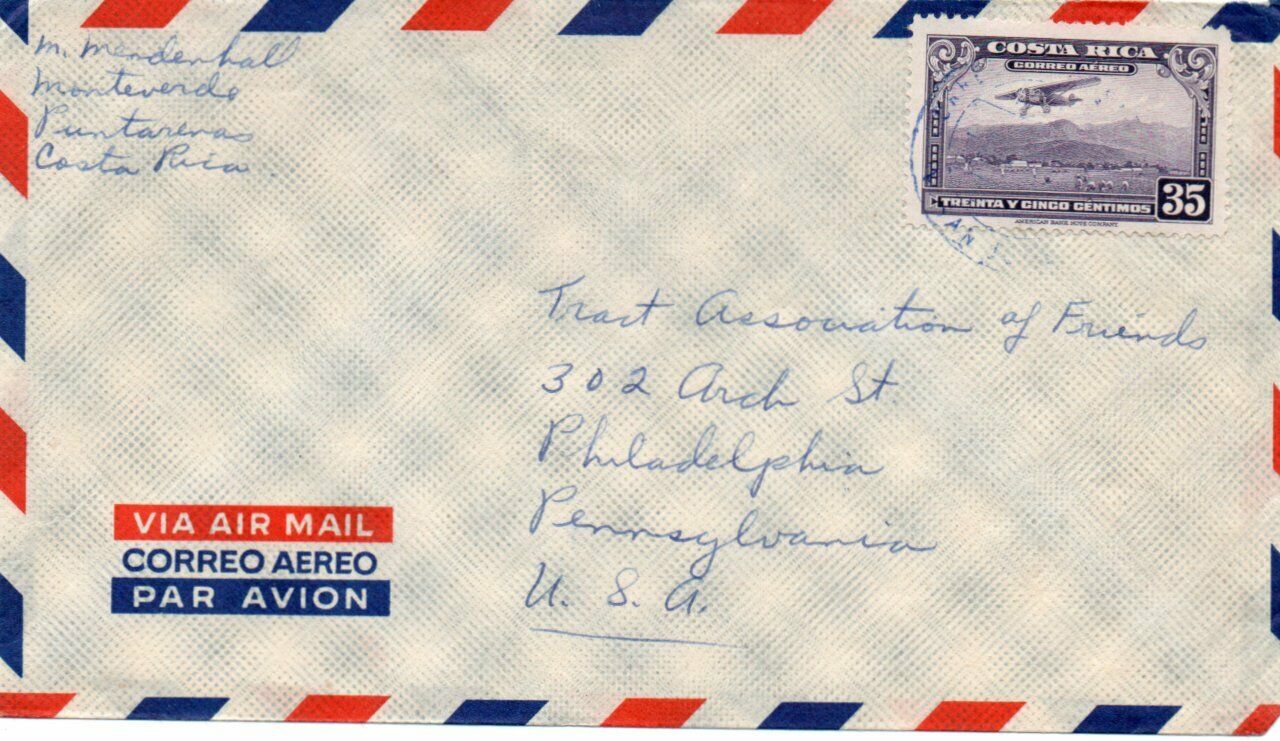 M. Mendenhall
Monteverde
Puntarenas
Costa Rica
COSTA RICA
CORREO AÉREO
TREINTA Y CINCO CÉNTIMOS
35
AMERICAN BANK NOTE COMPANY.
Tract Association of Friends
302 Arch St.
Philadelphia
Pennsylvania
U. S. A.
VIA AIR MAIL
CORREO AEREO
PAR AVION